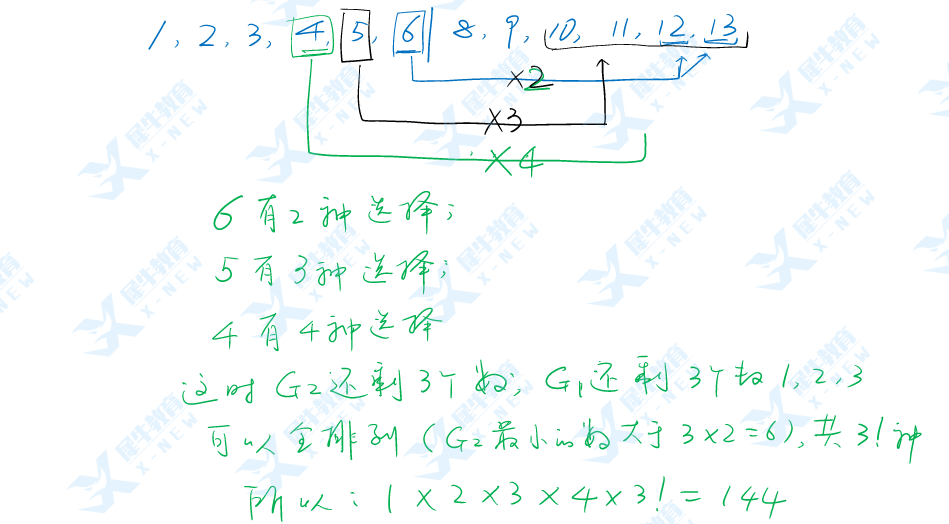 1, 2, 3, 4, 5, 6 | 8, 9, 10, 11, 12, 13
×2
×3
×4
6有2种选择;
5有3种选择;
4有4种选择
这时G2还剩3个数, G1还剩3个数1,2,3
可以全排列(G2最小的数大于3×2=6), 共3!种
所以: 1×2×3×4×3! = 144
犀牛教育
X-NEW